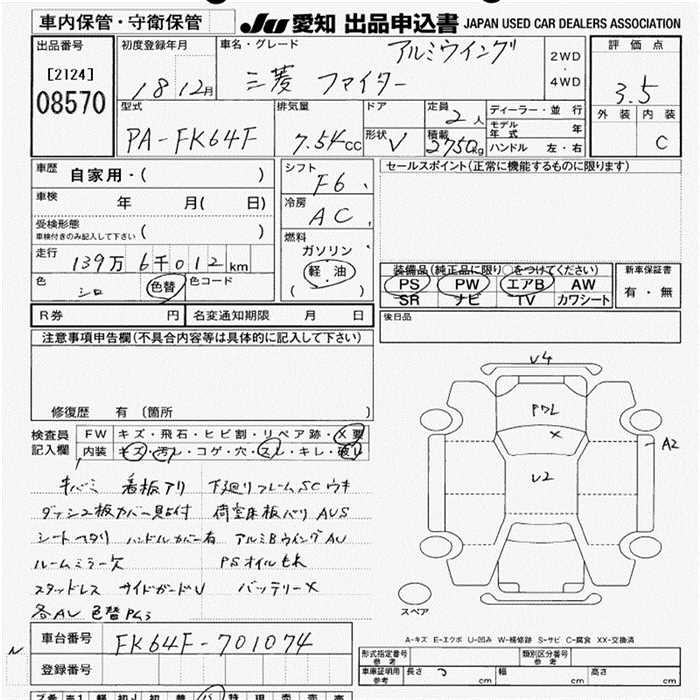 車内保管・守衛保管
JU 愛知 出品申込書 JAPAN USED CAR DEALERS ASSOCIATION
出品番号
[2124]
08570
初度登録年月
18年12月
車名・グレード
アルミウイング
三菱 ファイター
2WD
・
4WD
評価点
3.5
外装 内装
C
型式
PA-FK64F
排気量
7.54cc
ドア
形状 V
定員 2人
積載 2750kg
ディーラー・並行
モデル年式 年
ハンドル 左・右
車歴
自家用・( )
車検
年 月( 日)
受検形態
車検付きのみ記入して下さい ( )
走行
139万6千012km
色 シロ 色替 色コード
シフト
F6
冷房
AC
燃料
ガソリン
軽・油
( )
セールスポイント(正常に機能するものに限ります)
装備品(純正品に限り○をつけてください)
PS PW エアB AW
SR ナビ TV カワシート
新車保証書
有・無
R券 円 名変通知期限 月 日
後日品
注意事項申告欄(不具合内容等は具体的に記入して下さい)
修復歴 有(箇所 )
検査員
記入欄
FW キズ・飛石・ヒビ割・リペア跡・X要
内装 キズ・汚レ・コゲ・穴・スレ・キレ・破レ
キバミ 看板アリ 下廻りフレームSCウキ
ダッシュ板カバー見付 荷室床板バリ AUS
シートヘタリ ハンドルカバー有 アルミBウイングAU
ルームミラー欠 PSオイルもれ
スタッドレス サイドガードU バッテリーX
各AU 色替PC3
V4
PWL
X
A2
V2
スペア
車台番号 FK64F-701074
登録番号
A-キズ E-エクボ U-凹み W-補修跡 S-サビ C-腐食 XX-交換済
形式指定番号
参考
類別区分番号
参考
車庫証明用
参考
長さ cm 幅 cm 高さ cm